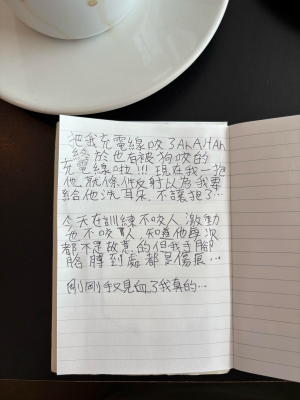 把我充電線咬了AhAHAh
終於也有被狗咬的
充電線啦!!!現在我一抱
他就條件反射以為我要
給他洗耳朵 不讓抱了…
今天在訓練不咬人 激動
也不咬人 知道他每次
都不是故意的但我手腳
胳膊到處都是傷痕…
剛剛手又見血了我真的…